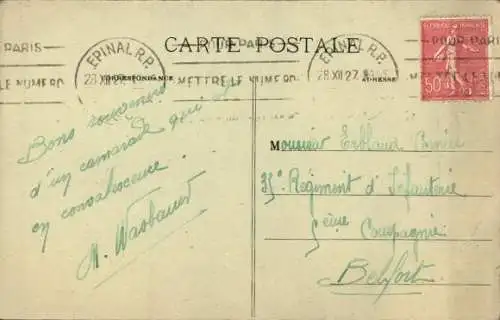 CARTE POSTALE
POUR PARIS
EPINAL R.P.
EPINAL R.P.
28 XII 27
METTRE LE NUMERO
28 XII 27
CORRESPONDANCE
ADRESSE
50
Bons souvenirs
d'un camarade qui est
en convalescence.
M. Wasbauer
Monsieur
35e Régiment d'Infanterie
5ème Compagnie
Belfort